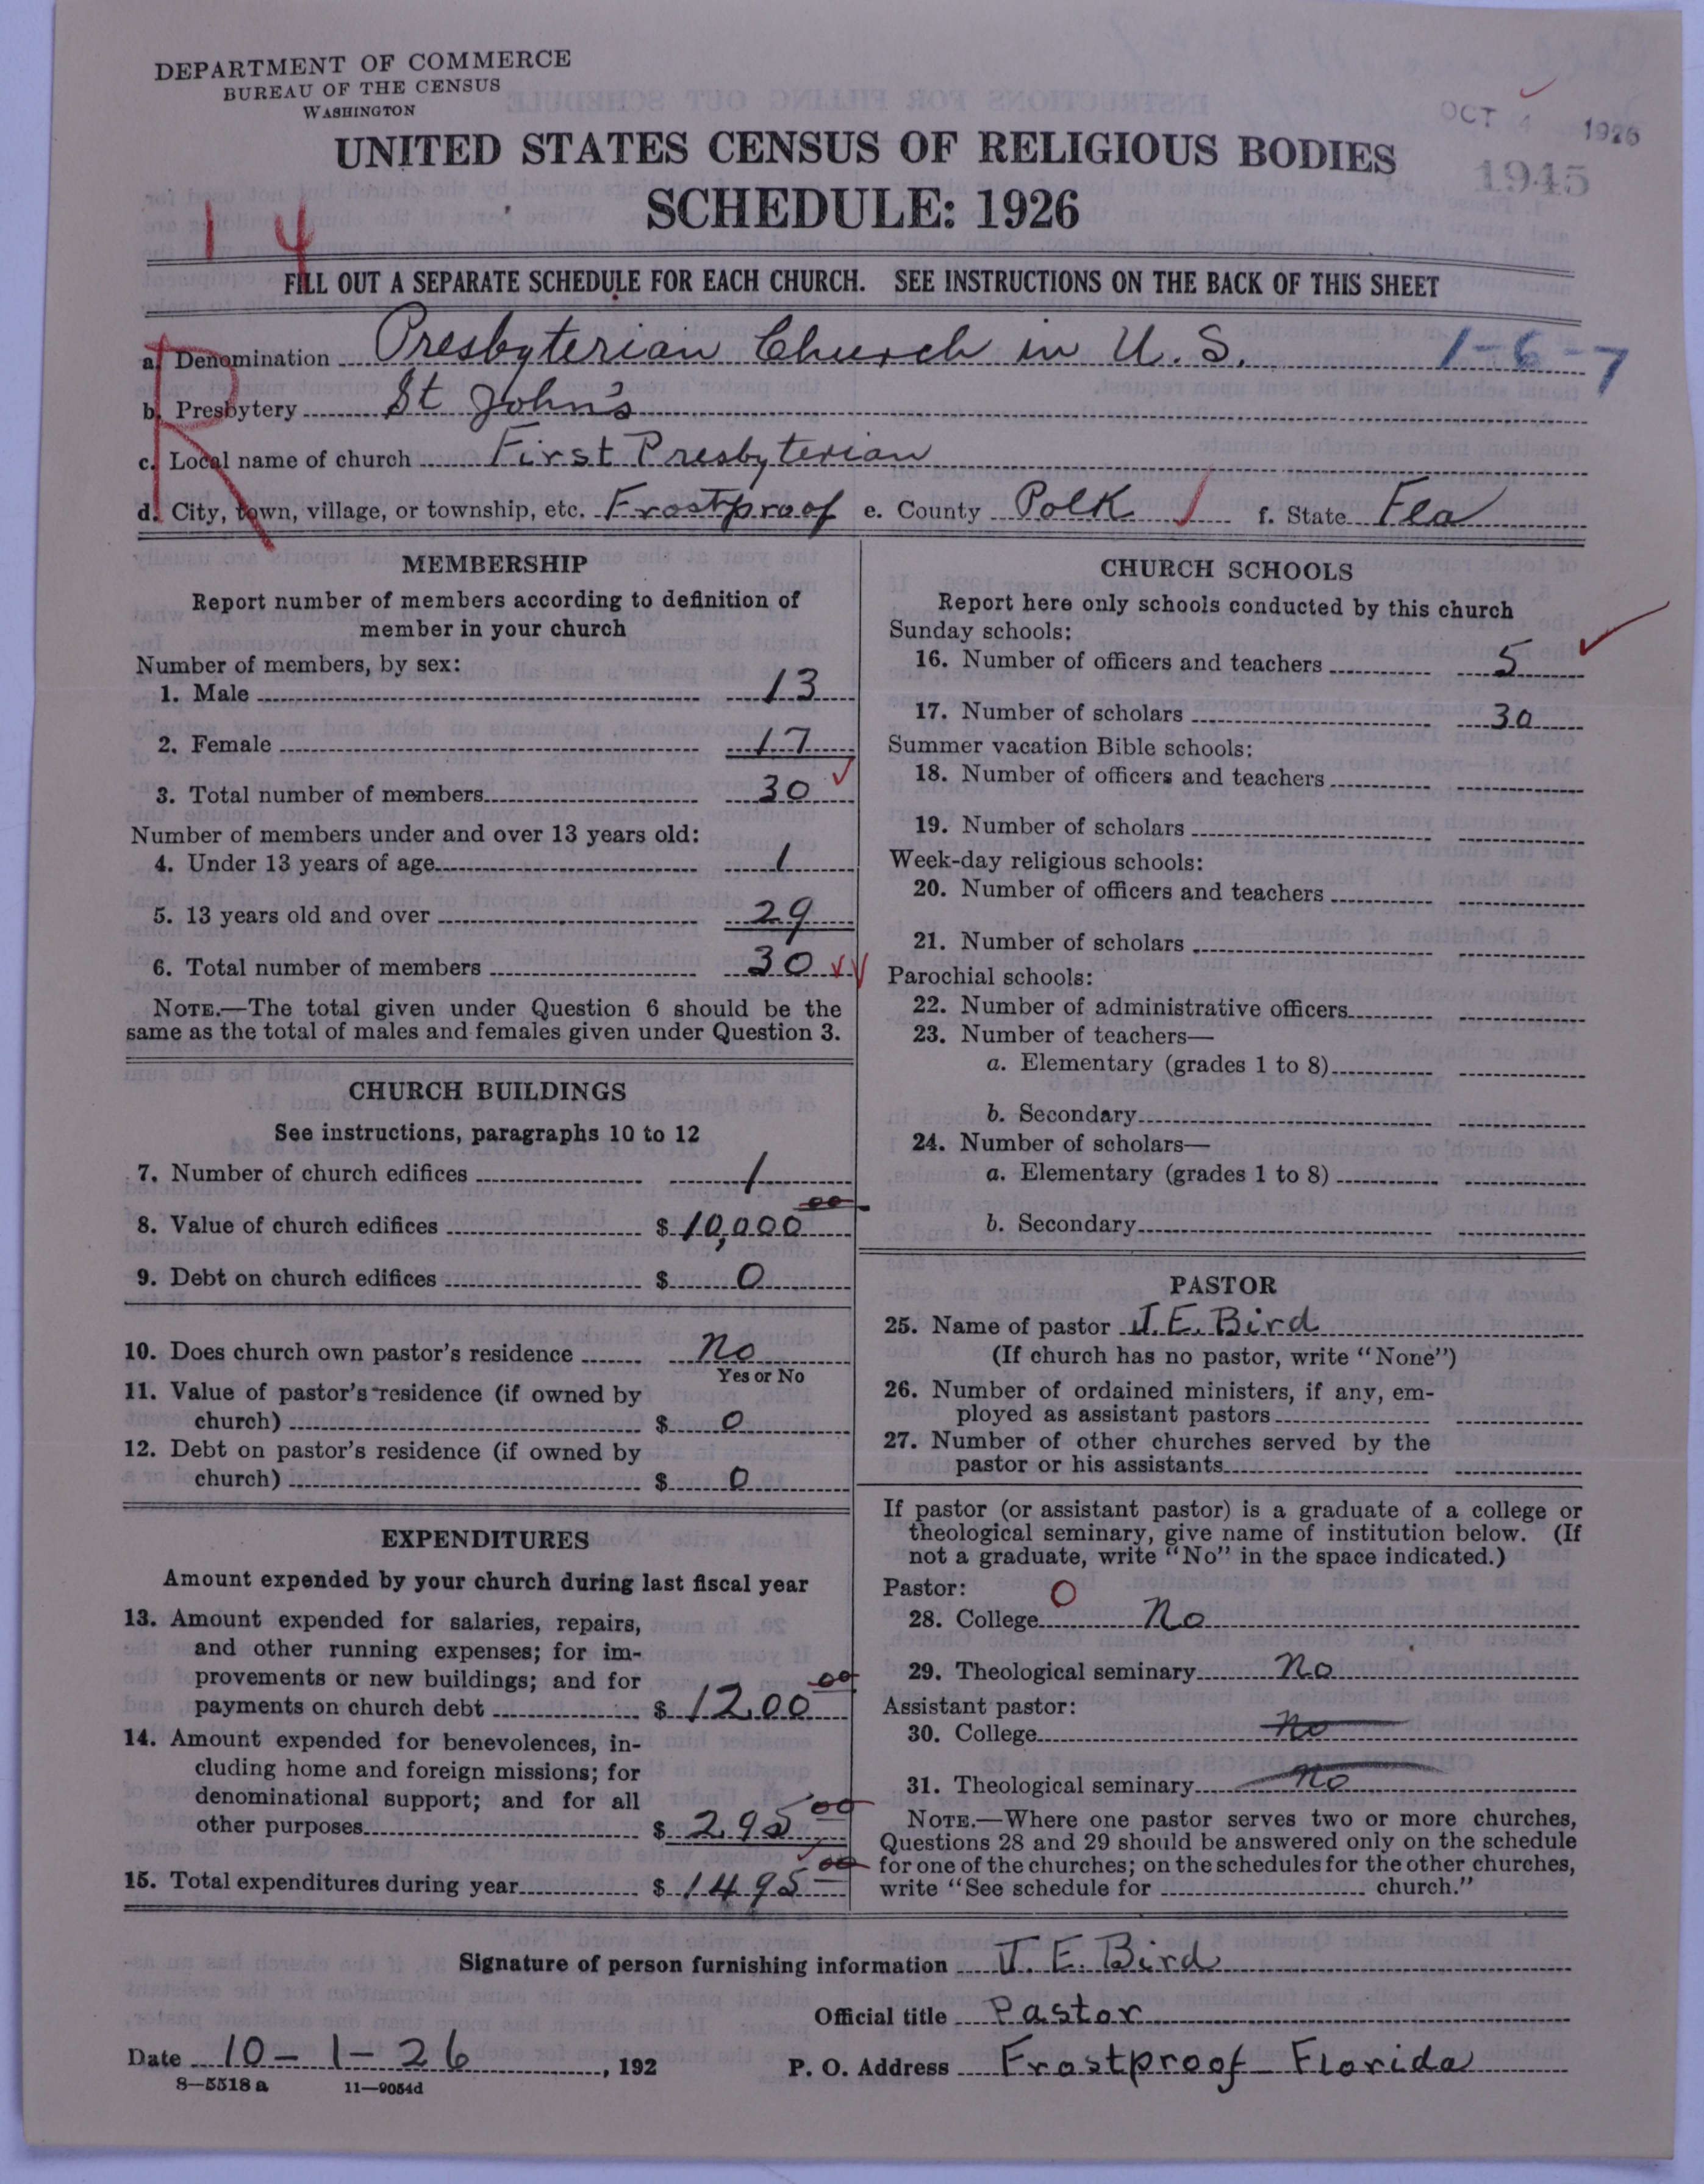 DEPARTMENT OF COMMERCE
BUREAU OF THE CENSUS
WASHINGTON
OCT 4 1926
1945
UNITED STATES CENSUS OF RELIGIOUS BODIES
SCHEDULE: 1926
1 4
FILL OUT A SEPARATE SCHEDULE FOR EACH CHURCH. SEE INSTRUCTIONS ON THE BACK OF THIS SHEET
R
a. Denomination Presbyterian Church in U. S. 1-6-7
b. Presbytery St John's
c. Local name of church First Presbyterian
d. City, town, village, or township, etc. Frostproof e. County Polk f. State Fla
MEMBERSHIP
Report number of members according to definition of
member in your church
Number of members, by sex:
1. Male 13
2. Female 17
3. Total number of members 30
Number of members under and over 13 years old:
4. Under 13 years of age 1
5. 13 years old and over 29
6. Total number of members 30
NOTE.—The total given under Question 6 should be the
same as the total of males and females given under Question 3.
CHURCH BUILDINGS
See instructions, paragraphs 10 to 12
7. Number of church edifices 1
8. Value of church edifices $ 10,000 00
9. Debt on church edifices $ 0
10. Does church own pastor's residence No
Yes or No
11. Value of pastor's residence (if owned by
church) $ 0
12. Debt on pastor's residence (if owned by
church) $ 0
EXPENDITURES
Amount expended by your church during last fiscal year
13. Amount expended for salaries, repairs,
and other running expenses; for im-
provements or new buildings; and for
payments on church debt $ 1200 00
14. Amount expended for benevolences, in-
cluding home and foreign missions; for
denominational support; and for all
other purposes $ 295 00
15. Total expenditures during year $ 1495 00
CHURCH SCHOOLS
Report here only schools conducted by this church
Sunday schools:
16. Number of officers and teachers 5
17. Number of scholars 30
Summer vacation Bible schools:
18. Number of officers and teachers
19. Number of scholars
Week-day religious schools:
20. Number of officers and teachers
21. Number of scholars
Parochial schools:
22. Number of administrative officers
23. Number of teachers—
a. Elementary (grades 1 to 8)
b. Secondary
24. Number of scholars—
a. Elementary (grades 1 to 8)
b. Secondary
PASTOR
25. Name of pastor J. E. Bird
(If church has no pastor, write "None")
26. Number of ordained ministers, if any, em-
ployed as assistant pastors
27. Number of other churches served by the
pastor or his assistants
If pastor (or assistant pastor) is a graduate of a college or
theological seminary, give name of institution below. (If
not a graduate, write "No" in the space indicated.)
Pastor: O
28. College No
29. Theological seminary No
Assistant pastor:
30. College No
31. Theological seminary No
NOTE.—Where one pastor serves two or more churches,
Questions 28 and 29 should be answered only on the schedule
for one of the churches; on the schedules for the other churches,
write "See schedule for church."
Signature of person furnishing information J. E. Bird
Official title Pastor
Date 10-1-26, 192 P. O. Address Frostproof Florida
8—5518 a 11—9054d